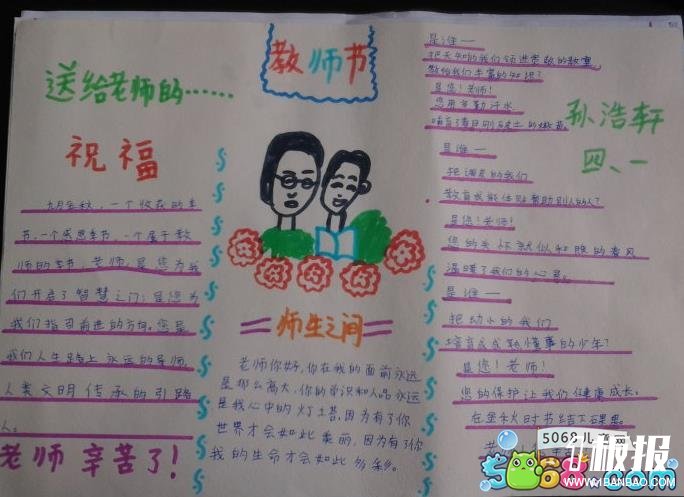 教师节
送给老师的……
祝福
九月金秋，一个收获的季
节，一个感恩季节，一个属于教
师的季节，老师，是您为我
们开启了智慧之门；是您为
我们指引前进的方向。您是
我们人生路上永远的导师，
人类文明传承的引路
人。
老师 辛苦了！
师生之间
老师你好，你在我的面前永远
是那么高大，你的学识和人品永远
是我心中的灯塔，因为有了你
世界才会如此美丽，因为有了你
我的生命才会如此多彩。
是谁一
把无知的我们领进宽敞的教室，
教给我们丰富的知识？
是您！老师！
您用辛勤汗水
哺育了春日刚破土的嫩苗。
是谁一
把调皮的我们
教育成能体贴帮助别人的人？
是您！老师！
您的关怀就似和暖的春风
温暖了我们的心灵。
是谁一
把幼小的我们
培育成成熟懂事的少年？
是您！老师！
您的保护让我们健康成长。
在金秋时节结下硕果。
孙浩轩
四、一
板报
WWW.1BANBAO.COM